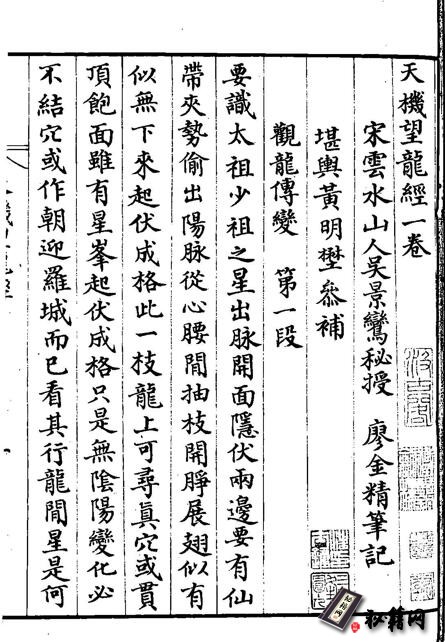 天機望龍經一卷
宋雲水山人吴景鸞秘授　廖金精筆記
堪輿黃明㸑叅補
觀龍傳變　第一段
要識太祖少祖之星出脉開面隱伏兩邊要有仙
帶夾勢偷出陽脉從心腰間抽枝開睜展翅似有
似無下來起伏成格此一枝龍上可尋真穴或貫
頂飽面雖有星峯起伏成格只是無陰陽變化必
不結穴或作朝迎羅城而已看其行龍間星是何
秘籍网